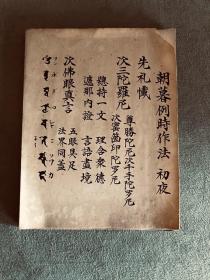 朝暮例時作法 初夜
先礼懺
次三陀羅尼
尊勝陀尼次千手陀羅尼
次宝篋印陀羅尼
總持一文 理合衆徳
遮那内證 言語盡境
次佛眼真言
五眼具足
法界同蓋